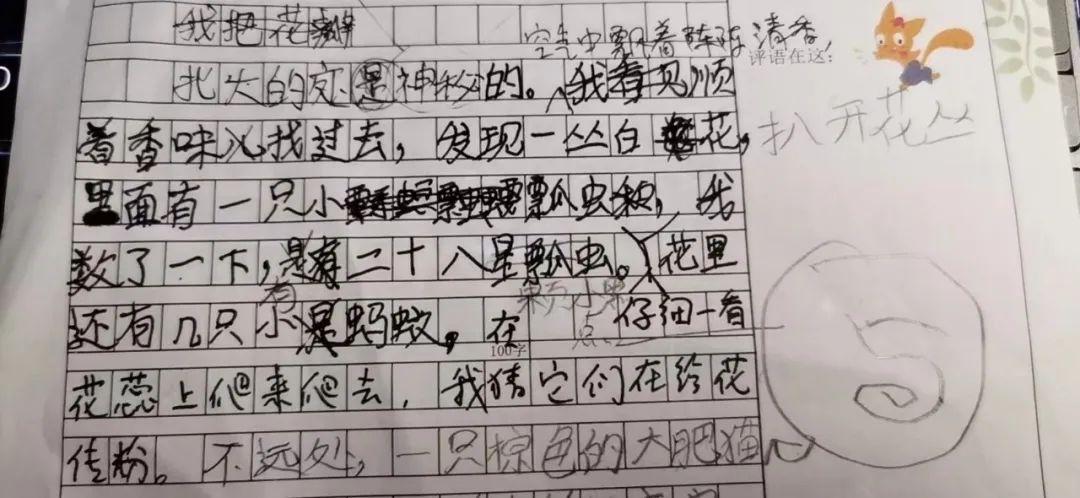 我把花瓣
空气中飘着阵阵清香,
评语在这:
北大的夜是神秘的。我看见顺
着香味儿找过去，发现一丛白花，
扒开花丛
里面有一只小瓢虫, 我
数了一下，是有二十八星瓢虫。花里
有
还有几只小蚂蚁。在
仔细一看
100字
花蕊上爬来爬去，我猜它们在给花
传粉。不远处，一只棕色的大肥猫